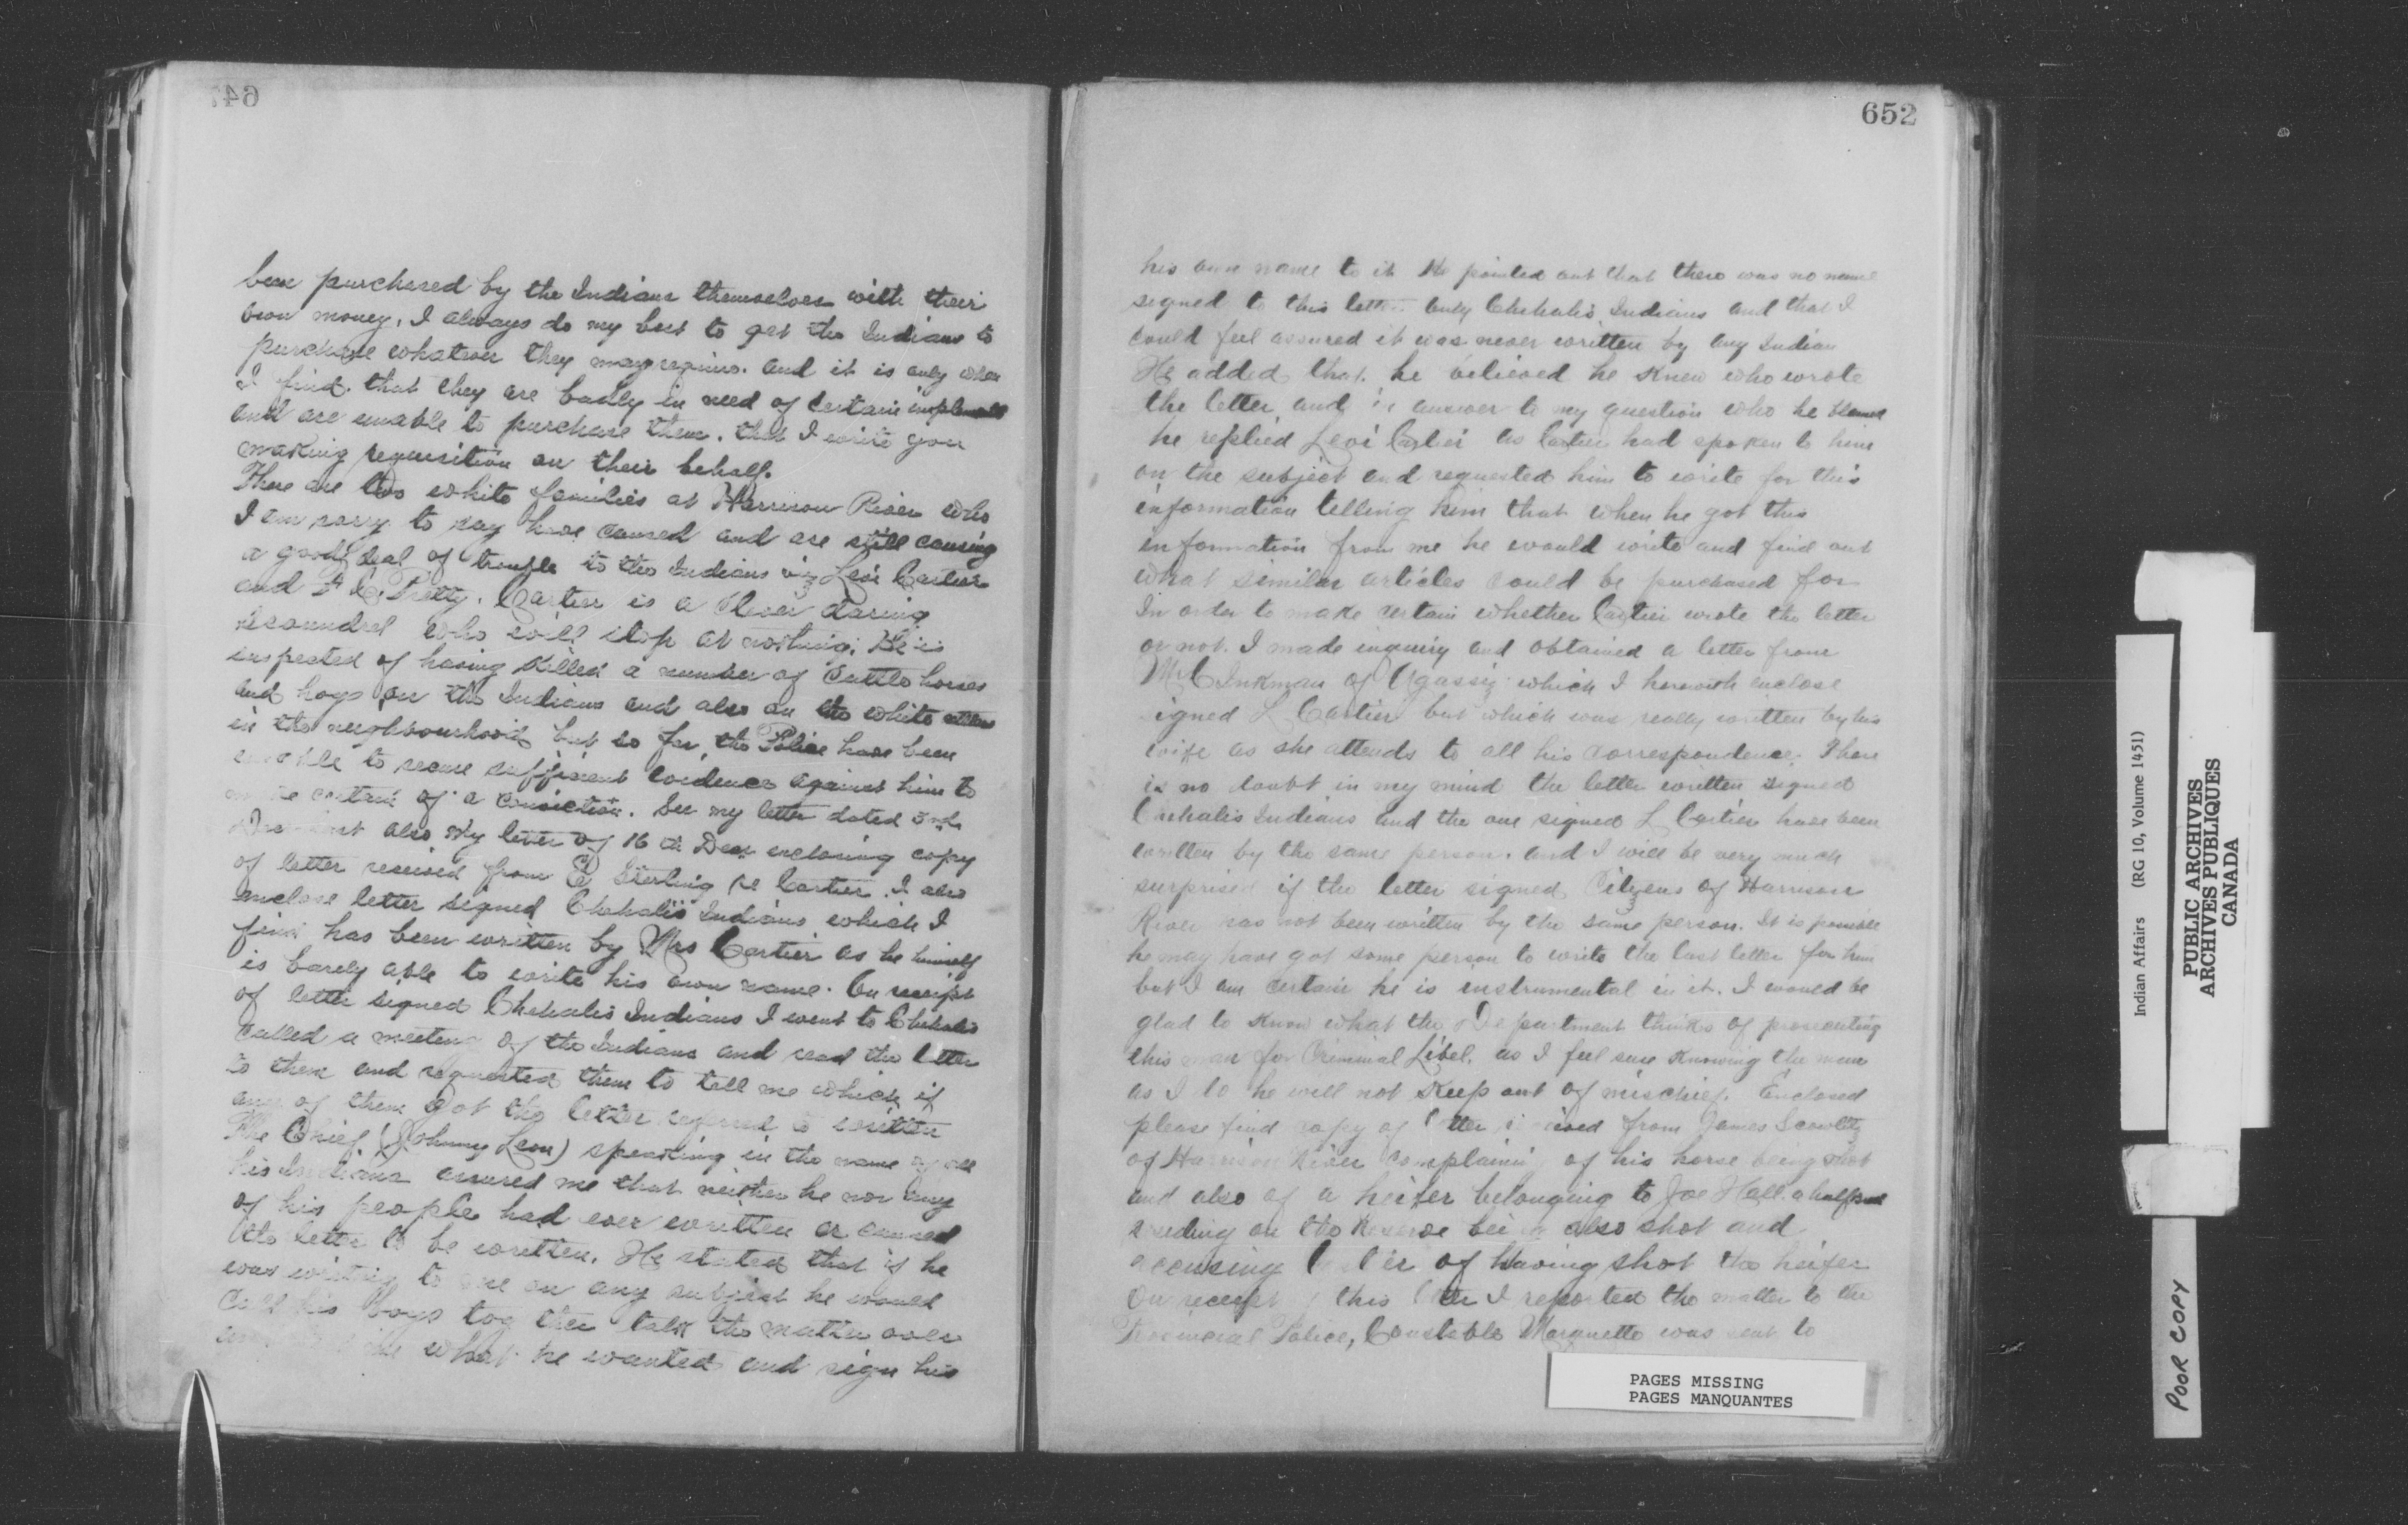 647
been purchased by the Indians themselves with their
own money. I always do my best to get the Indians to
purchase whatever they may require. and it is only when
I find. that they are badly in need of certain implements
and are unable to purchase them. that I write you
making requisition on their behalf.
There are two white families at Harrison River who
I am sorry to say have caused and are still causing
a good deal of trouble to the Indians viz Levi Cartier
and Pretty. Cartier is a daring
scoundrel who will stop at nothing. He is
suspected of having killed a number of Cattle horses
and hogs on the Indians and also on the white
in the neighbourhood but so far, the Police have been
unable to secure sufficient evidence against him to
certain of a conviction. See my letter dated
also my letter of 16th Decr enclosing copy
of letter received from Sterling re Cartier. I also
enclose letter signed Chehalis Indians which I
find has been written by Mrs Cartier as he himself
is barely able to write his own name. On receipt
of letter signed Chehalis Indians I went to Chehalis
called a meeting of the Indians and read the letter
to them and requested them to tell me which if
any of them got the letter referred to written
The Chief (Johnny Leon) speaking in the name of all
his Indians assured me that neither he nor any
of his people had ever written or caused
the letter to be written. He stated that if he
was writing to me on any subject he would
Call his boys together talk the matter over
what he wanted and sign his
652
his own name to it He pointed out that there was no name
signed to this letter only Chehalis Indians and that I
could feel assured it was never written by any Indian
He added that. he believed he knew who wrote
the letter, and in answer to my question who he blamed
he replied Levi Cartier as Cartier had spoken to him
on the subject and requested him to write for this
information telling him that when he got this
information from me he would write and find out
what similar articles could be purchased for
In order to make certain whether Cartier wrote the letter
or not. I made inquiry and obtained a letter from
Mr C Inkman of Agassiz which I herewith enclose
igned L Cartier but which was really written by his
wife as she attends to all his correspondence. There
is no doubt in my mind the letter written signed
Chehalis Indians and the one signed L Cartier have been
written by the same person. and I will be very much
surprised if the letter signed Citizens of Harrison
River has not been written by the same person. It is possible
he may have got some person to write the last letter for him
but I am certain he is instrumental in it. I would be
glad to know what the Department thinks of prosecuting
this man for Criminal Libel. as I feel sure knowing the man
as I do he will not keep out of mischief. Enclosed
please find copy of letter received from James
of Harrison River complaining of his horse being shot
and also of a heifer belonging to Joe Hall. a halfbreed
residing on the Reserve being also shot and
accusing Cartier of having shot the heifer
On receipt of this letter I reported the matter to the
Provincial Police, Constable Marquette was sent to
PAGES MISSING
PAGES MANQUANTES
Indian Affairs (RG 10, Volume 1451)
PUBLIC ARCHIVES
ARCHIVES PUBLIQUES
CANADA
POOR COPY